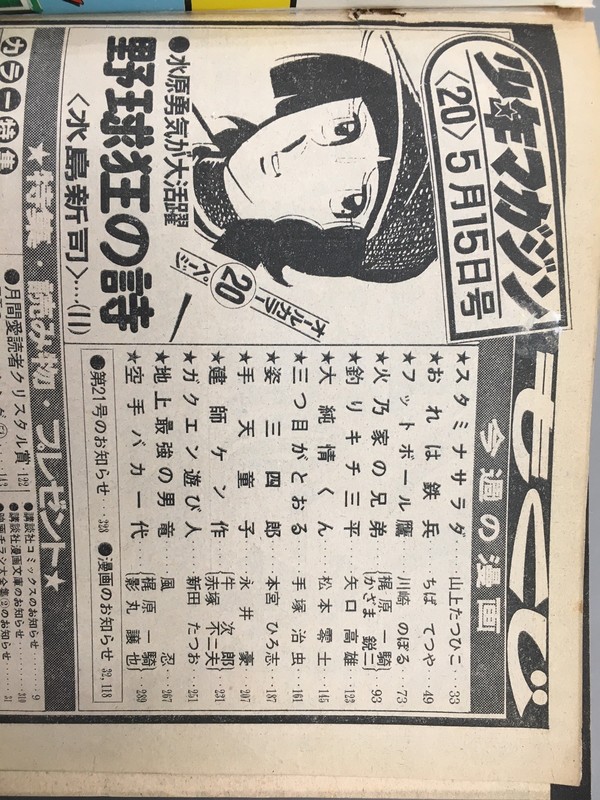 少年マガジン
〈20〉5月15日号
もくじ
●水原勇気が大活躍
野球狂の詩
〈水島新司〉…(11)
オールカラー
20
ページ
今週の漫画
★スタミナサラダ……山上たつひこ…33
★おれは鉄兵……ちば てつや…49
★フットボール鷹……川崎 のぼる…73
★火乃家の兄弟……{梶原一騎 かざま鋭二}93
★釣りキチ三平……矢口 高雄…123
★大純情くん……松本 零士…145
★三つ目がとおる……手塚 治虫…161
★姿三四郎……本宮 ひろ志…187
★手天童子……永井 豪…207
★建師ケン作……{牛 次郎 赤塚 不二夫}231
★ガクエン遊び人……新田 たつお…251
★地上最強の男 竜……風 忍…267
★空手バカ一代……{梶原 一騎 影丸 譲也}289
●第21号のお知らせ…328
●漫画のお知らせ 32,118
★特集・読み物・プレゼント★
●月間愛読者クリスタル賞…122
●講談社コミックスのお知らせ……9
●講談社漫画文庫のお知らせ……310
カラー特集